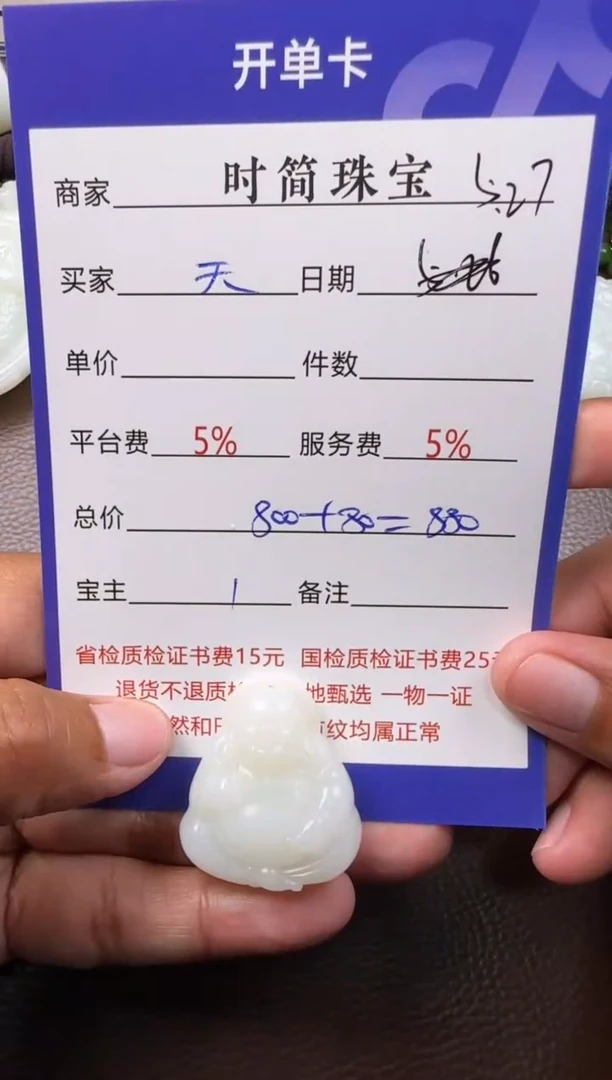 开单卡
商家 时简珠宝 5.27
买家 天 日期
单价 件数
平台费 5% 服务费 5%
总价 800+80=880
宝主 1 备注
省检质检证书费15元 国检质检证书费25
退货不退质 地甄选 一物一证
然和 纹均属正常